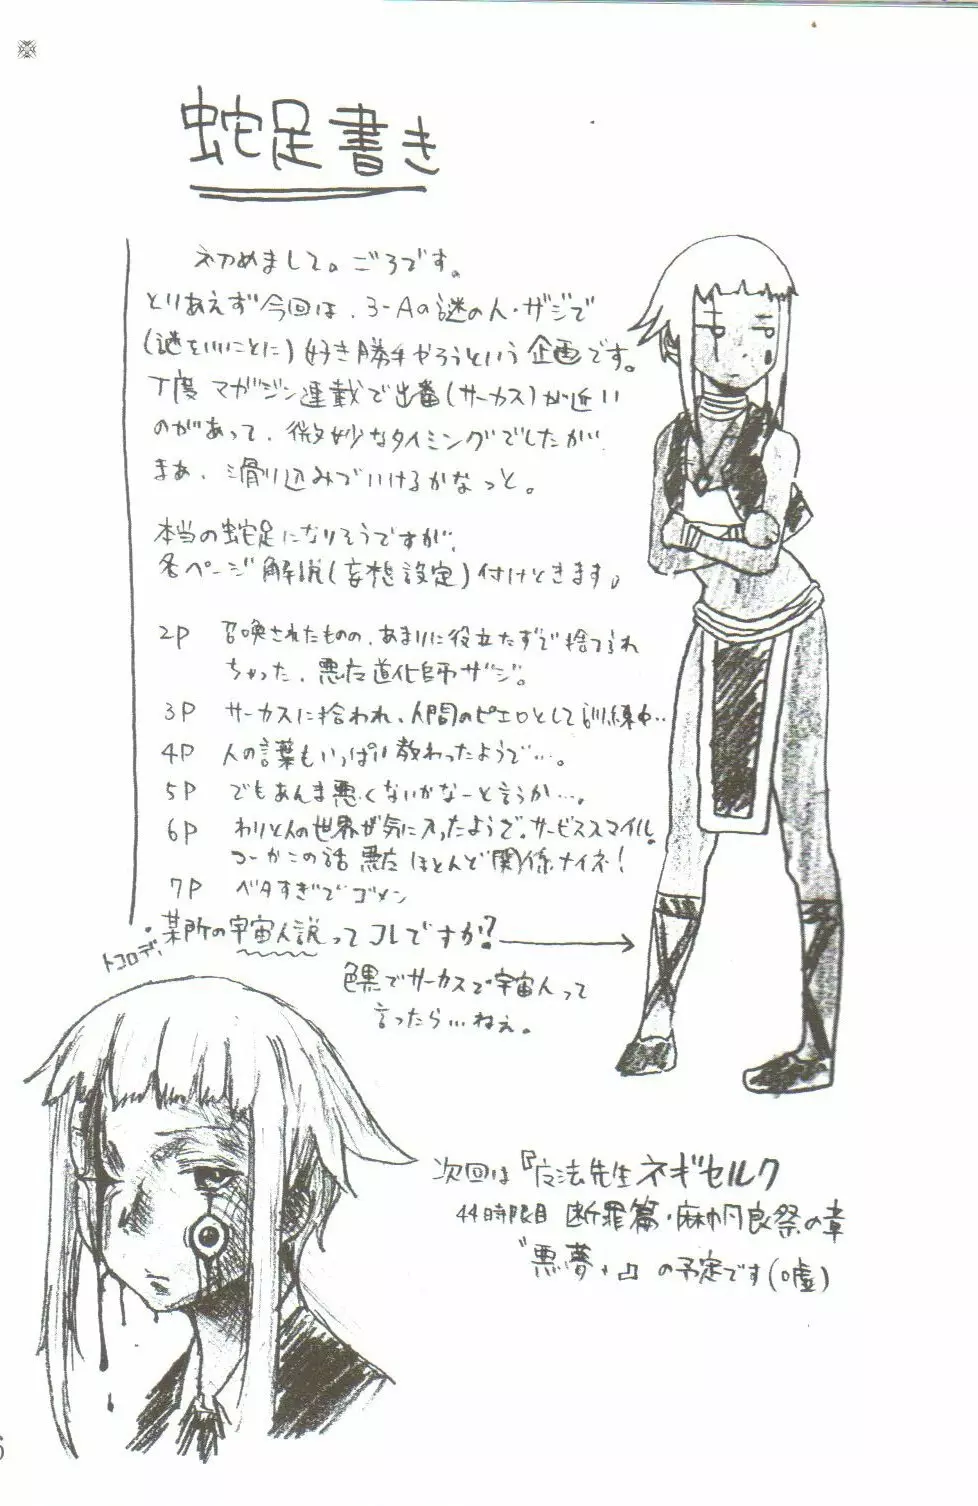 蛇足書き
初めまして。ごろです。
とりあえず今回は、3-Aの謎の人・ザジで
(謎をいいことに)好き勝手やろうという企画です。
丁度マガジン連載で出番(サーカス)が近い
のがあって、微妙なタイミングでしたが、
まあ、滑り込みでいけるかなっと。
本当の蛇足になりそうですが、
各ページ解説(妄想設定)付けときます。
2P 召喚されたものの、あまりに役立たずで捨てられ
ちゃった、悪左道化師ザジ。
3P サーカスに拾われ、人間のピエロとして訓練中‥
4P 人の言葉もいっぱい教わったようで…。
5P でもあんま悪くないかなーと言うか…。
6P わりと人の世界が気に入ったようで、サービススマイル。
つーかこの話 悪左 ほとんど関係ナイネ!
7P ベタすぎでゴメン
・某所の宇宙人説ってコレですか?
トコロデ、
色黒でサーカスで宇宙人って
言ったら…ねぇ。
次回は『魔法先生ネギセルク
44時限目 断罪篇・麻帆良祭の章
"悪夢"』の予定です(嘘)
6